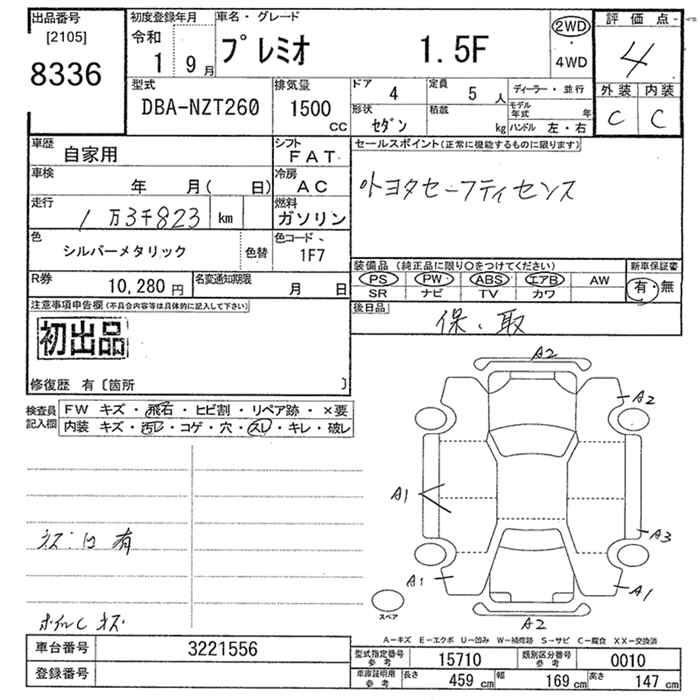 出品番号
[2105]
8336
初度登録年月
令和
1 9月
車名・グレード
プレミオ 1.5F
2WD
・
4WD
評価点
4
外装 内装
C C
型式
DBA-NZT260
排気量
1500
CC
ドア 4
定員 5 人
ディーラー・並行
形状 セダン
積載 kg
モデル年式 年
ハンドル 左・右
車歴 自家用
シフト FAT
車検 年 月( 日)
冷房 AC
走行 1万3千823 km
燃料 ガソリン
色 シルバーメタリック 色替
色コード 1F7
R券 10,280円
名変通知期限 月 日
セールスポイント(正常に機能するものに限ります)
トヨタセーフティセンス
装備品(純正品に限り○をつけてください)
PS PW ABS エアB AW
SR ナビ TV カワ
新車保証書
有・無
後日品
保、取
注意事項申告欄(不具合内容等は具体的に記入して下さい)
初出品
修復歴 有〔箇所 〕
検査員記入欄
FW キズ・飛石・ヒビ割・リペア跡・×要
内装 キズ・汚レ・コゲ・穴・スレ・キレ・破レ
有
キズ
A2
A2
A1
A3
A1
A1
A2
スペア
A-キズ E-エクボ U-凹み W-補修跡 S-サビ C-腐食 XX-交換済
車台番号 3221556
登録番号
型式指定番号 参考 15710
類別区分番号 参考 0010
車庫証明用 参考 長さ 459 cm 幅 169 cm 高さ 147 cm